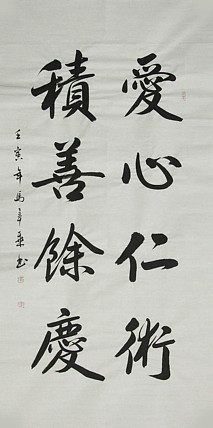 愛心仁術
積善餘慶
壬寅年馬辛乘書